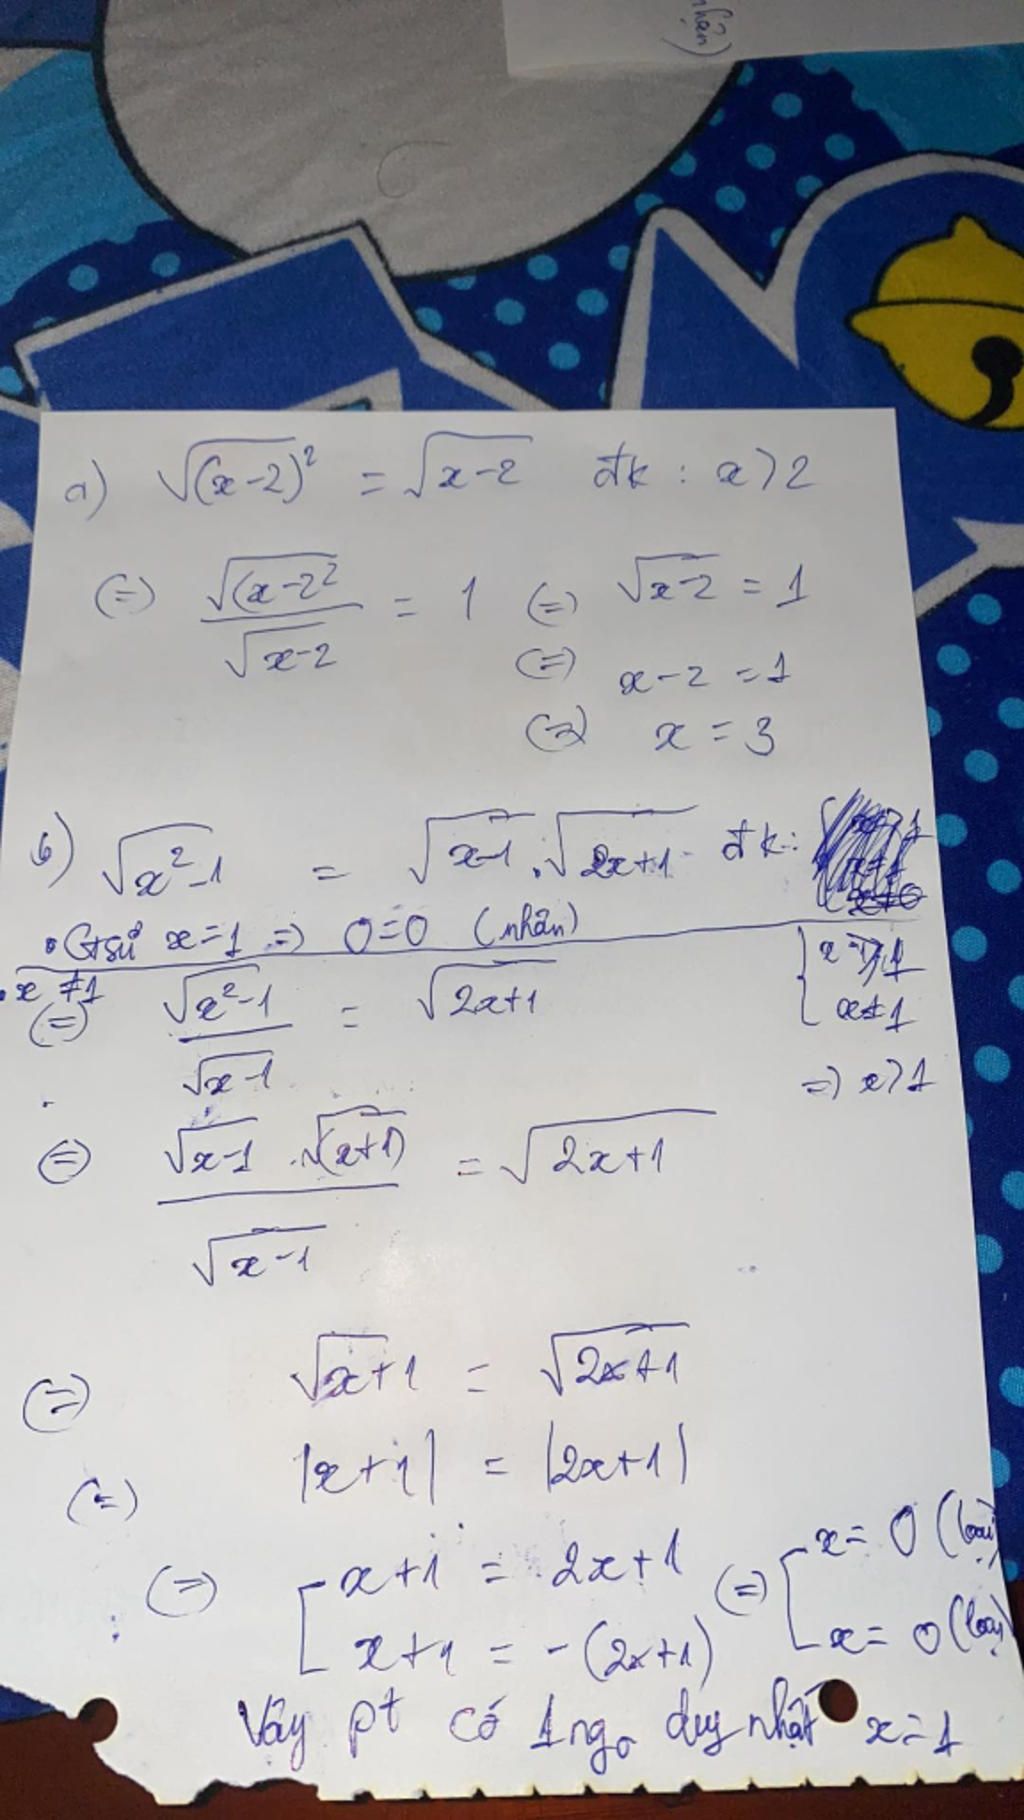 nhận)
a) √(x-2)² = √x-2 đk : x>2
(=) √(x-2² / √x-2 = 1 (=) √x-2 = 1
(=) x-2 = 1
(=) x = 3
b) √x²-1 = √x-1 . √2x+1 đk:
• Gsử x=1 => 0=0 (nhận)
• x ≠ 1
(=) √x²-1 / √x-1 = √2x+1
x ≠ 1
=> x>1
(=) √x-1 . √(x+1) / √x-1 = √2x+1
(=) √x+1 = √2x+1
(=) |x+1| = |2x+1|
(=) [ x+1 = 2x+1 (=) [ x = 0 (loại)
x+1 = -(2x+1) x = 0 (loại)
Vậy pt có 1 ngo duy nhất x=1